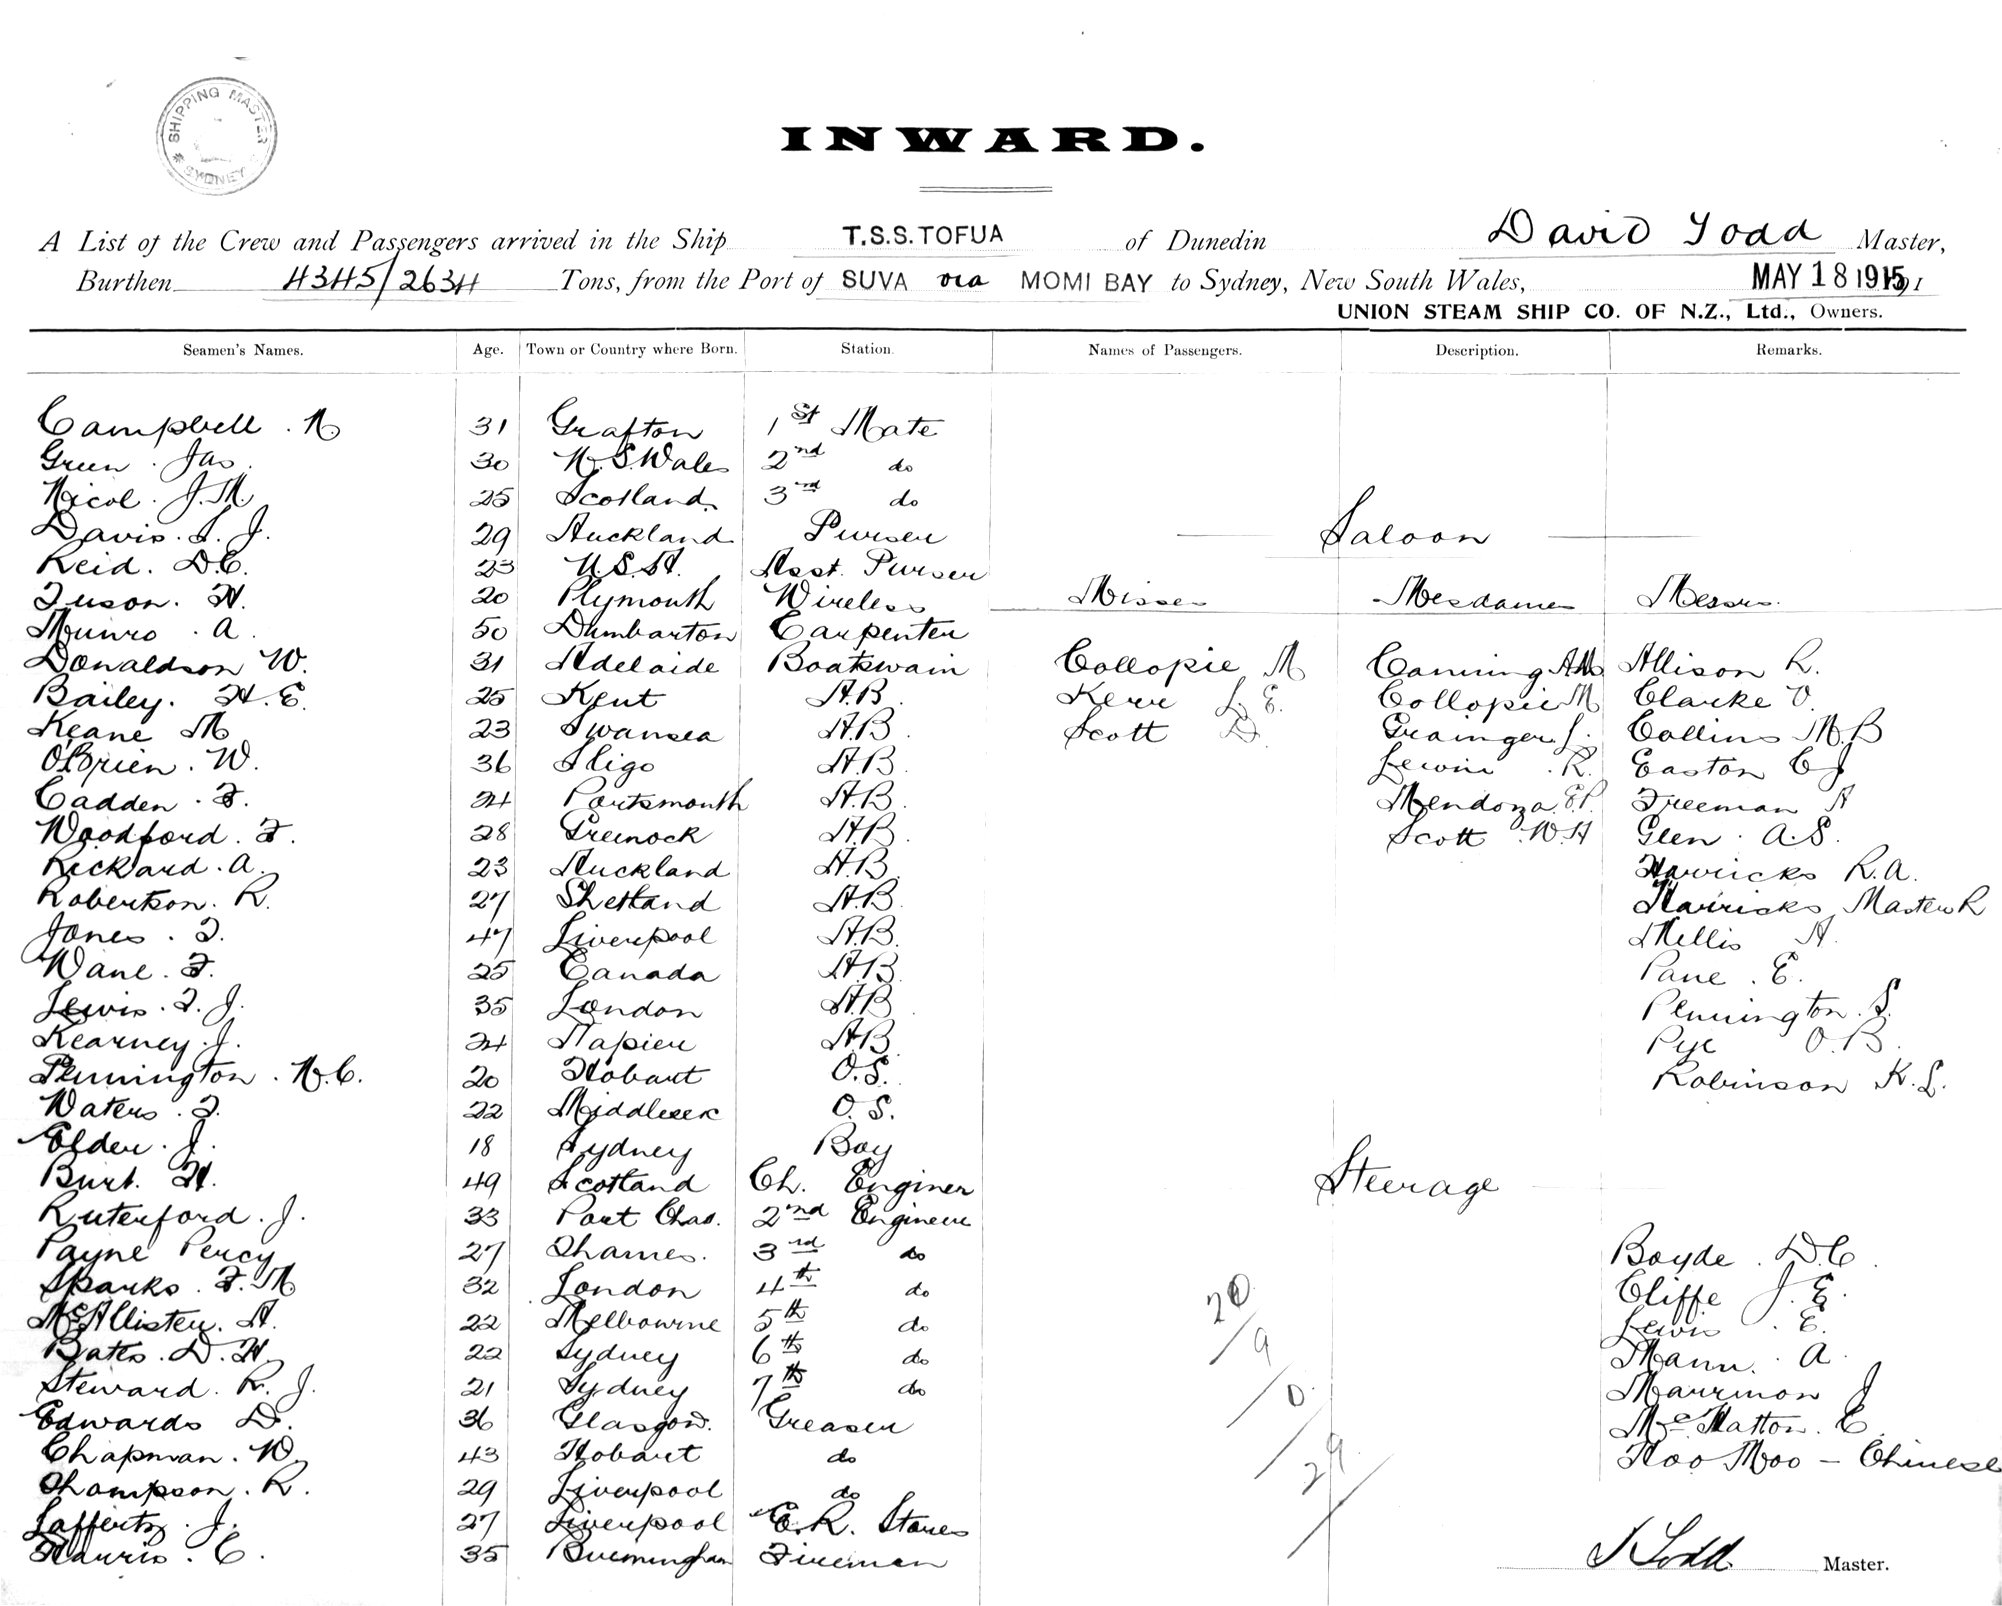 SHIPPING MASTER
* SYDNEY *
INWARD.
A List of the Crew and Passengers arrived in the Ship T.S.S. TOFUA of Dunedin David Todd Master,
Burthen 4345/2634 Tons, from the Port of SUVA via MOMI BAY to Sydney, New South Wales, MAY 18 1915 191
UNION STEAM SHIP CO. OF N.Z., Ltd., Owners.
Seamen's Names. Age. Town or Country where Born. Station. Names of Passengers. Description. Remarks.
Campbell . N 31 Grafton 1st Mate
Green . Jas 30 N.S.Wales 2nd do
Nicol . J.M 25 Scotland 3rd do
Davis . S. J. 29 Auckland Purser
Saloon
Reid . D.C. 23 U.S.A. Asst. Purser
Tuson . H. 20 Plymouth Wireless Misses Mesdames Messrs.
Munro . A. 50 Dumbarton Carpenter
Donaldson W. 31 Adelaide Boatswain Collopie M Canning AM Allison R.
Bailey . H.E. 25 Kent A.B Kerr L. E. Collopie M Clarke V.
Keane M 23 Swansea A.B. Scott D. Grainger L. Collins M.B
O'Brien . W. 36 Sligo A.B. Lewin . R. Easton C J
Cadden . F. 24 Portsmouth A.B. Mendoza E.P. Freeman A
Woodford . F. 28 Greenock A.B. Scott W.H Glen . A.S.
Rickard . A. 23 Auckland A.B. Harricks R.A.
Robertson . R. 27 Shetland A.B. Harricks Master R
Jones . T. 47 Liverpool A.B. Mellis A.
Wane . F. 25 Canada A.B. Pane . E.
Lewis . T. J. 35 London A.B Pennington . S.
Kearney . J. 24 Napier A.B. Pye O.B.
Pennington . N.C. 20 Hobart O.S. Robinson K.L.
Waters . T. 22 Middlesex O.S.
Elder . J. 18 Sydney Boy
Burt . H. 49 Scotland Ch. Enginer Steerage
Ruterford . J. 33 Port Chas. 2nd Engineer
Payne Percy 27 Thames. 3rd do Boyde . D.C.
Sparks . F.M 32 London 4th do Cliffe J. E.
McAllister . A. 22 Melbourne 5th do Lewis . E.
Bates . D.H. 22 Sydney 6th do Mann . A.
Steward . R. J. 21 Sydney 7th do Marrinon J
Edwards D. 36 Glasgow. Greaser McHatton . C.
Chapman . W. 43 Hobart do Hoo Moo – Chinese
Thompson . R. 29 Liverpool do
20/9/0/29
Lafferty . J. 27 Liverpool E.R. Stores
Harris . C. 35 Burmingham Fireman
D Todd Master.